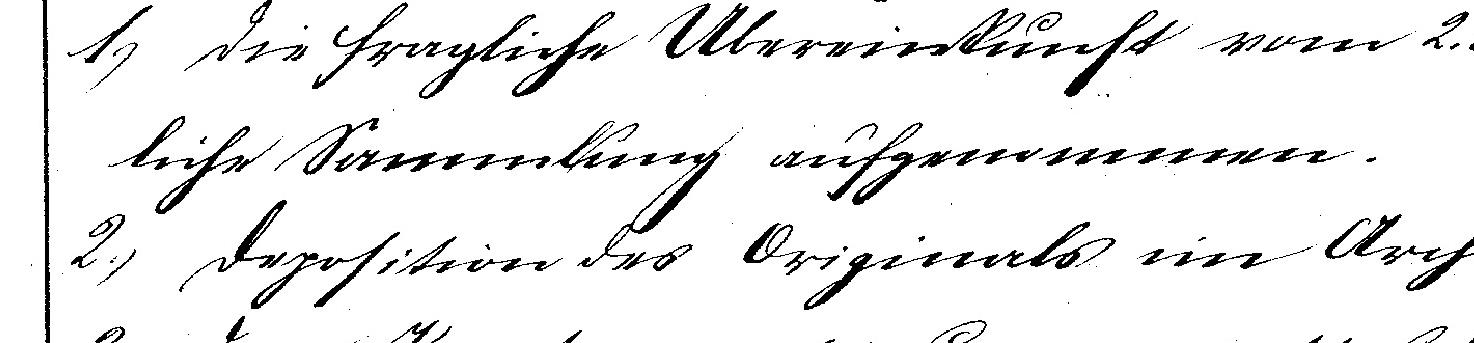 1.) Die fragliche Übereinkunft vom 2.
liche Sammlung aufgenommen.
2.) Deposition des Originals im Arch